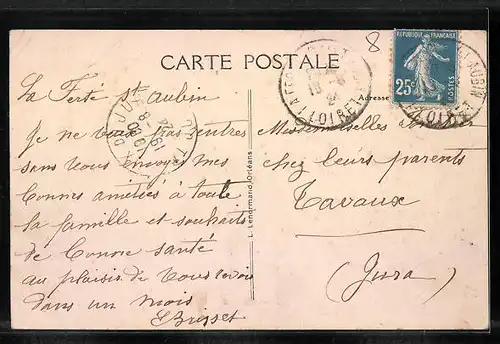 CARTE POSTALE
8
REPUBLIQUE FRANÇAISE
25c
POSTES
LOIRET
Adresse
La Ferté St Aubin
Je ne veux pas rentrer
sans vous envoyer mes
bonnes amitiés à toute
la famille et souhaits
de bonne santé
au plaisir de vous revoir
dans un mois
Brisset
L. Lenormand, Orléans
Mesdemoiselles
chez leurs parents
Tavaux
(Jura)